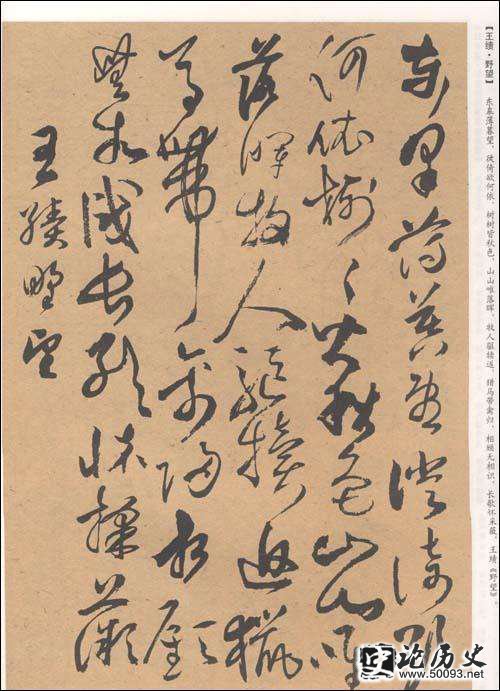 【王绩·野望】 东皋薄暮望，徙倚欲何依，树树皆秋色，山山唯落晖，牧人驱犊返，猎马带禽归，相顾无相识，长歌怀采薇。王绩《野望》
東皋薄暮望徙倚欲
何依樹々皆秋色山山唯
落暉牧人驅犢返獵
馬帶禽歸相顧
無相識長歌懷採薇
王績野望
论历史
www.50093.net